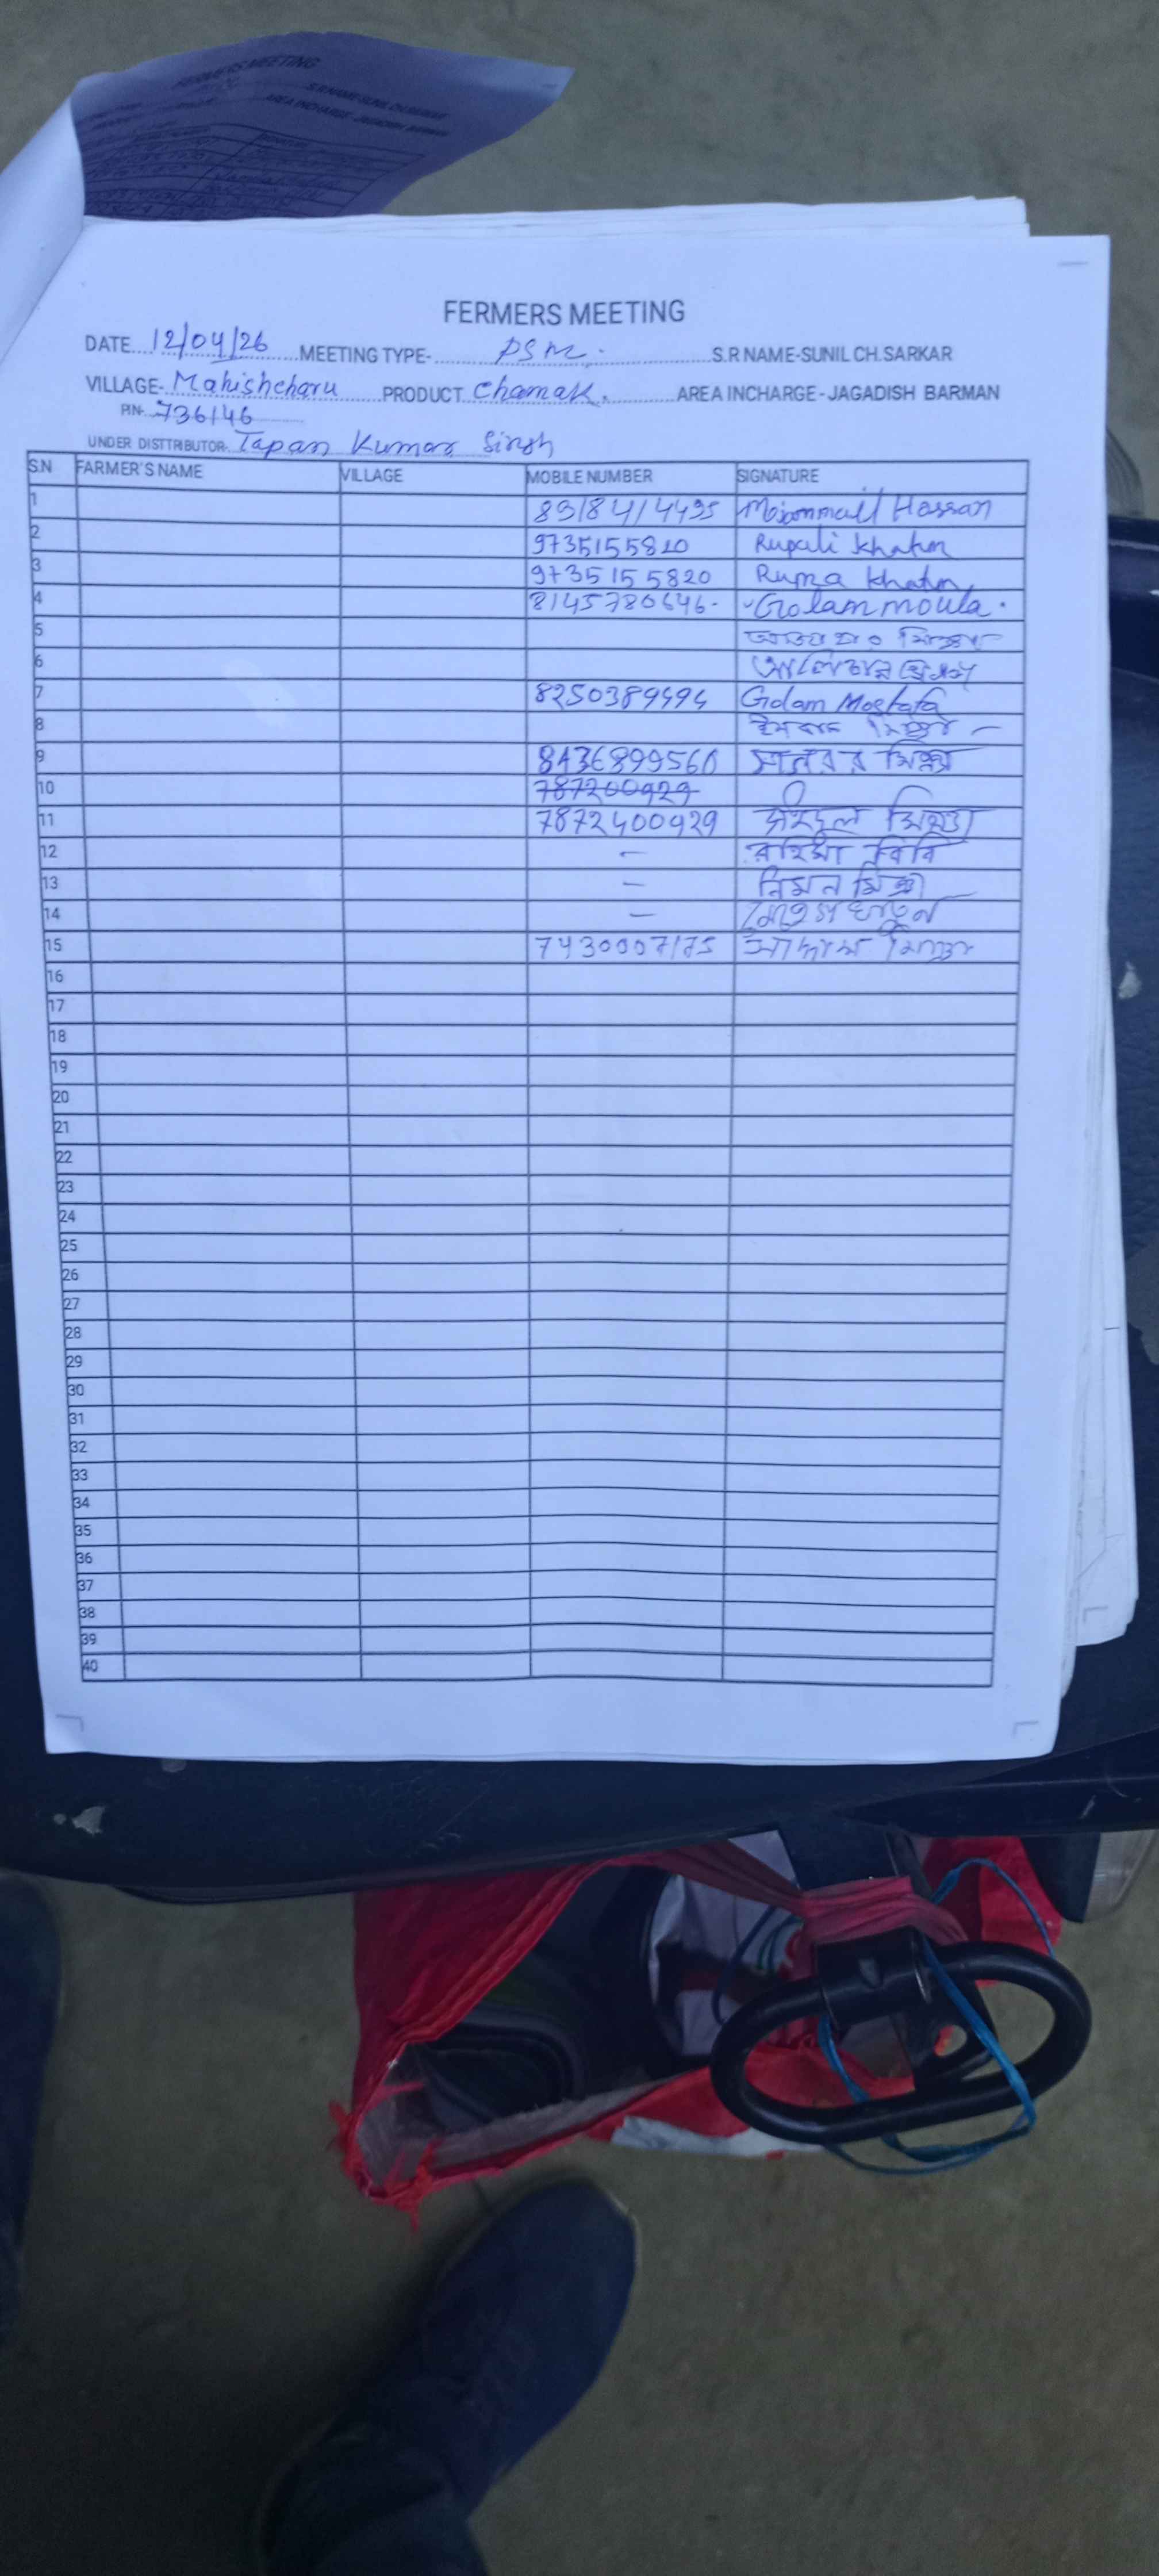 FERMERS MEETING
DATE 12/04/26 MEETING TYPE- PSM. S.R NAME-SUNIL CH.SARKAR
VILLAGE- Mahishcharu PRODUCT Chamak. AREA INCHARGE-JAGADISH BARMAN
PIN- 736146
UNDER DISTTRIBUTOR- Tapan Kumar Singh
S.N FARMER'S NAME VILLAGE MOBILE NUMBER SIGNATURE
1 8318414495 Hossan
2 9735155820 Rupali khatun
3 9735155820 Ruma khatun
4 8145780646- Golam moula.
5
6
7 8250389494 Golam Mostafa
8
9 8436899560 মিঞা
10 787200929
11 7872400929 মিঞা
12 - রহিমা বিবি
13 - মিঞা
14 - খাতুন
15 7430007175
16
17
18
19
20
21
22
23
24
25
26
27
28
29
30
31
32
33
34
35
36
37
38
39
40